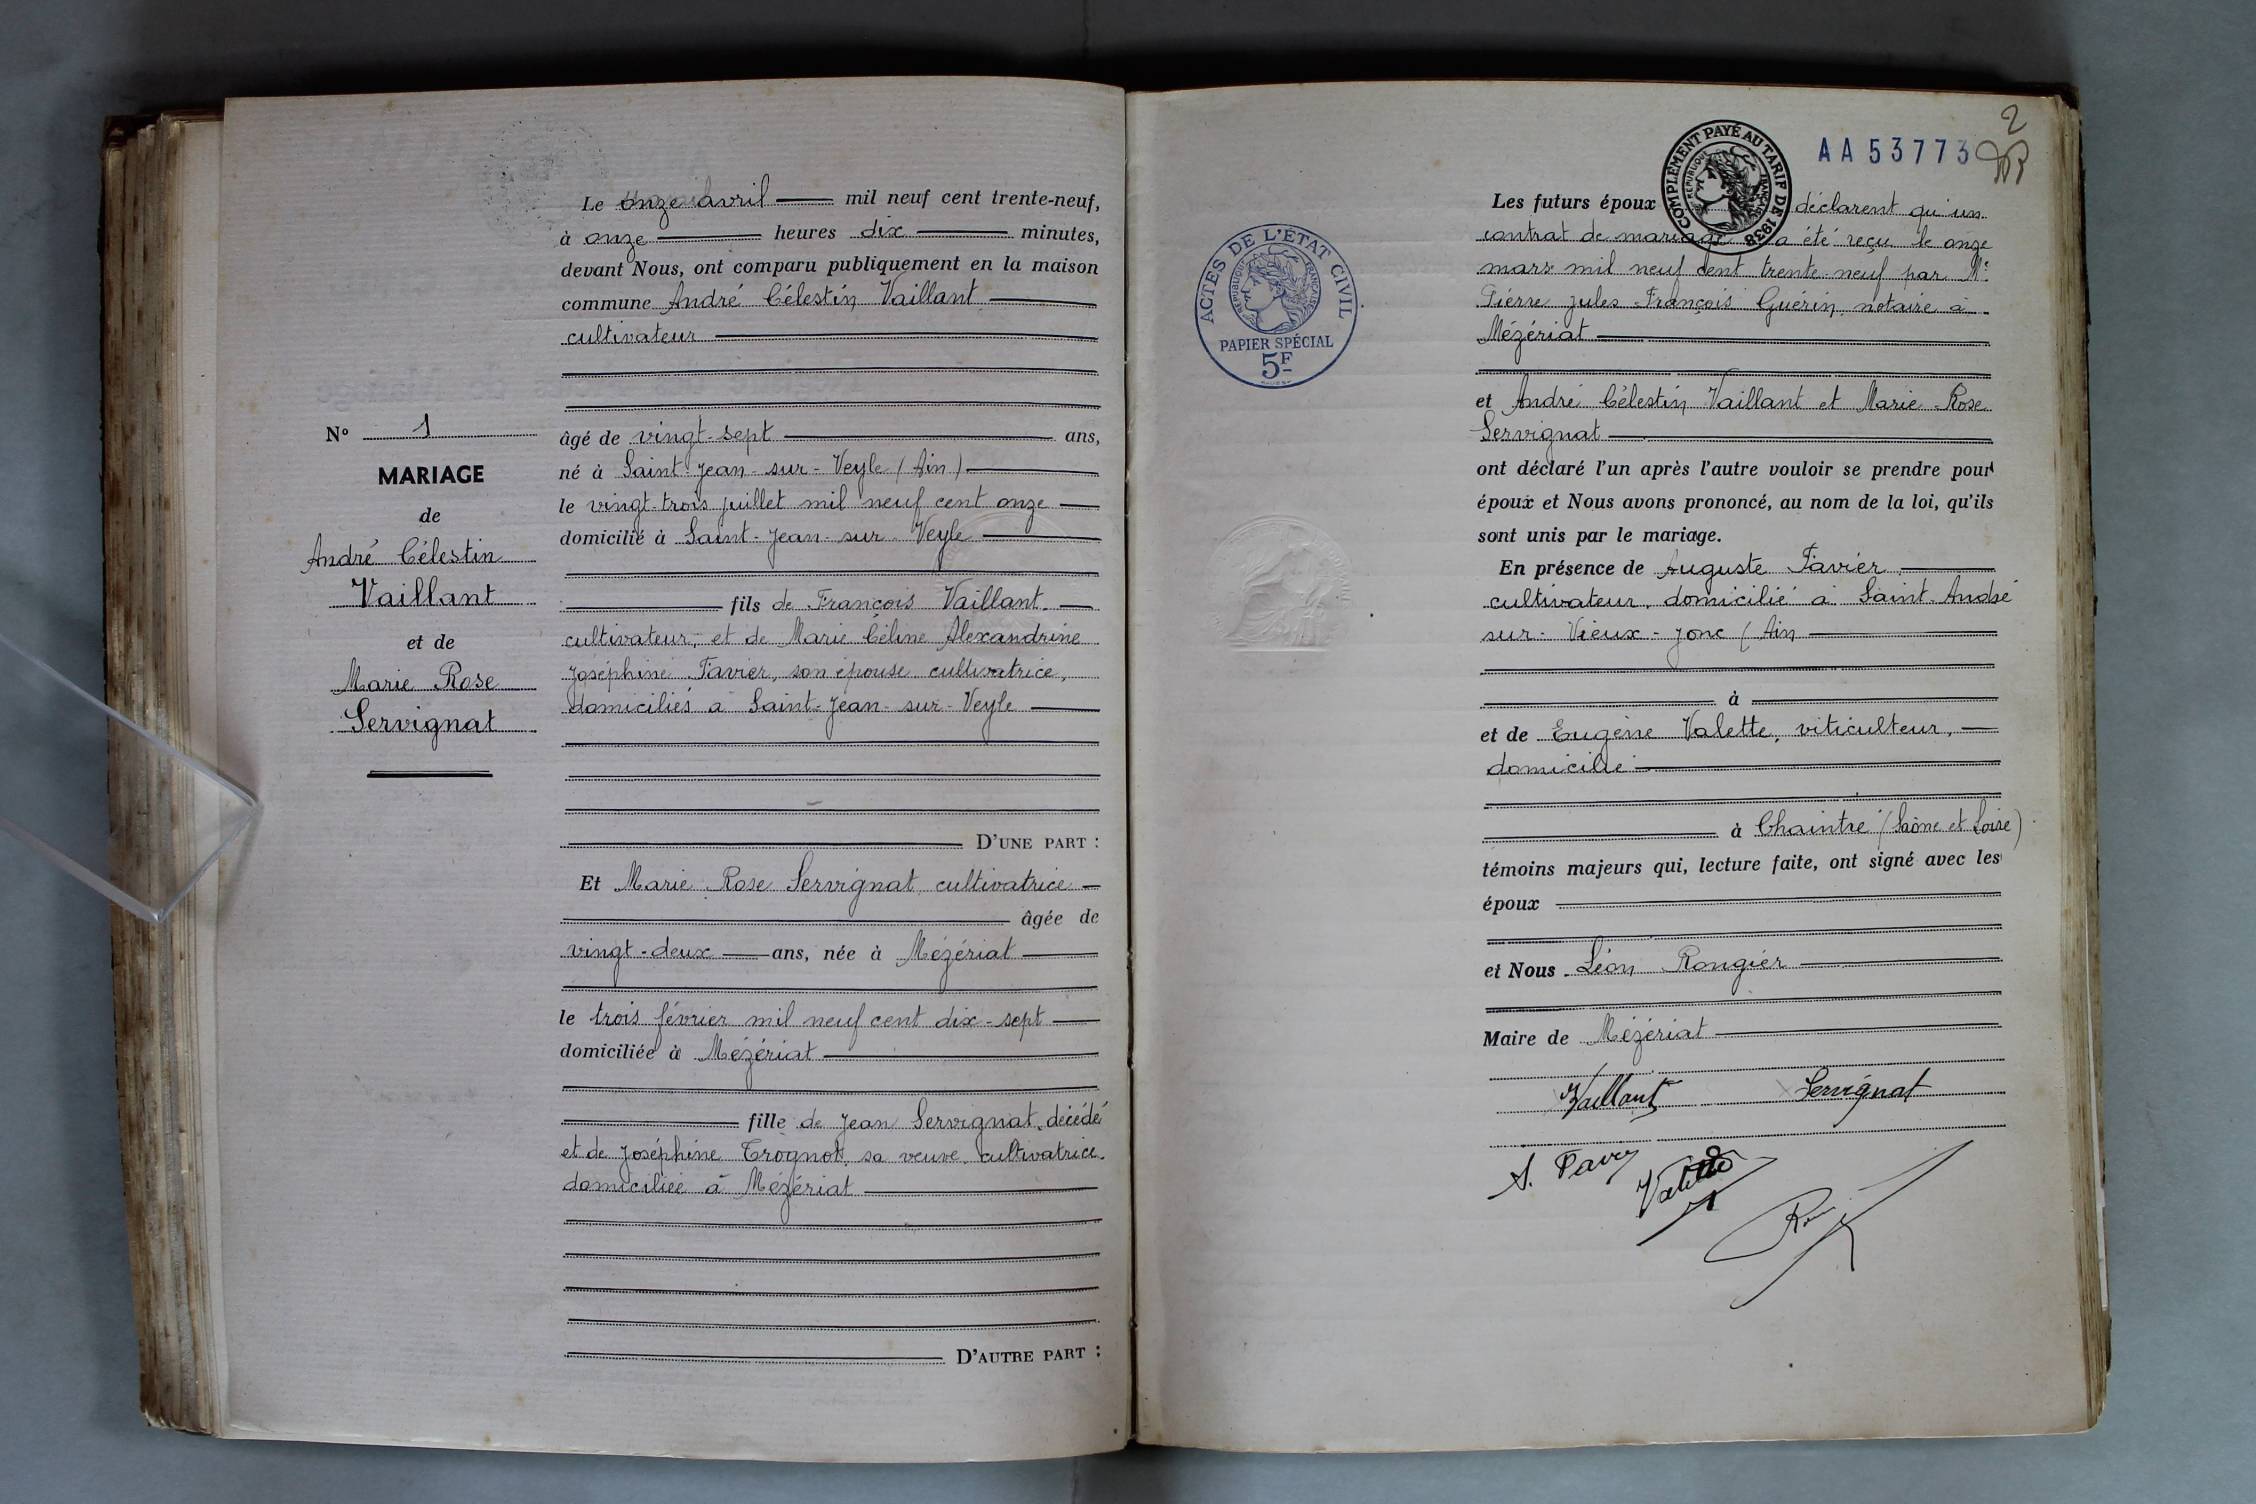 Le onze avril mil neuf cent trente-neuf,
à onze heures dix minutes,
devant Nous, ont comparu publiquement en la maison
commune André Célestin Vaillant
cultivateur
âgé de vingt-sept ans,
né à Saint-Jean-sur-Veyle (Ain)
le vingt-trois juillet mil neuf cent onze
domicilié à Saint-Jean-sur-Veyle
fils de François Vaillant
cultivateur, et de Marie Céline Alexandrine
Joséphine Favier, son épouse cultivatrice,
domiciliés à Saint-Jean-sur-Veyle
D'UNE PART :
Et Marie Rose Servignat cultivatrice
âgée de
vingt-deux ans, née à Mézériat
le trois février mil neuf cent dix-sept
domiciliée à Mézériat
fille de Jean Servignat, décédé
et de Joséphine sa veuve cultivatrice
domiciliée à Mézériat
D'AUTRE PART :
N° 1
MARIAGE
de
André Célestin
Vaillant
et de
Marie Rose
Servignat
2
AA 53773
COMPLÉMENT PAYÉ AU TARIF DE 1938
RÉPUBLIQUE FRANÇAISE
ACTES DE L'ÉTAT CIVIL
RÉPUBLIQUE FRANÇAISE
PAPIER SPÉCIAL
5F
Les futurs époux déclarent qu'un
contrat de mariage a été reçu le onze
mars mil neuf cent trente-neuf par Me
Pierre Jules François Guérin, notaire à
Mézériat
et André Célestin Vaillant et Marie Rose
Servignat
ont déclaré l'un après l'autre vouloir se prendre pour
époux et Nous avons prononcé, au nom de la loi, qu'ils
sont unis par le mariage.
En présence de Auguste Favier,
cultivateur, domicilié à Saint-André
sur-Vieux-Jonc (Ain
à
et de Eugène Valette, viticulteur,
domicilié
à Chaintré (Saône et Loire)
témoins majeurs qui, lecture faite, ont signé avec les
époux
et Nous Léon Rongier
Maire de Mézériat
Vaillant Servignat
A. Favier Valette